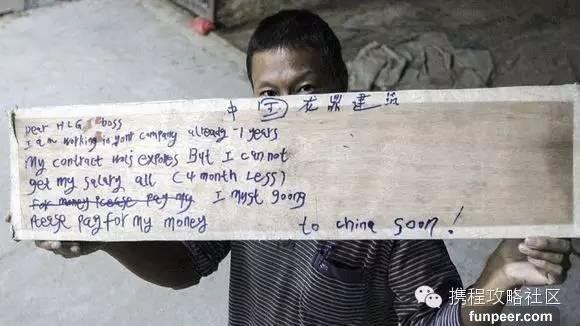 中国龙鼎建筑
Dear HLG boss
I am working in yont company already -1 years
My contract wais expores But I can not
get my salary all (4 month less)
for money Please pay my I must going
Please pay for my money to china soon!
携程攻略社区
funpeer.com